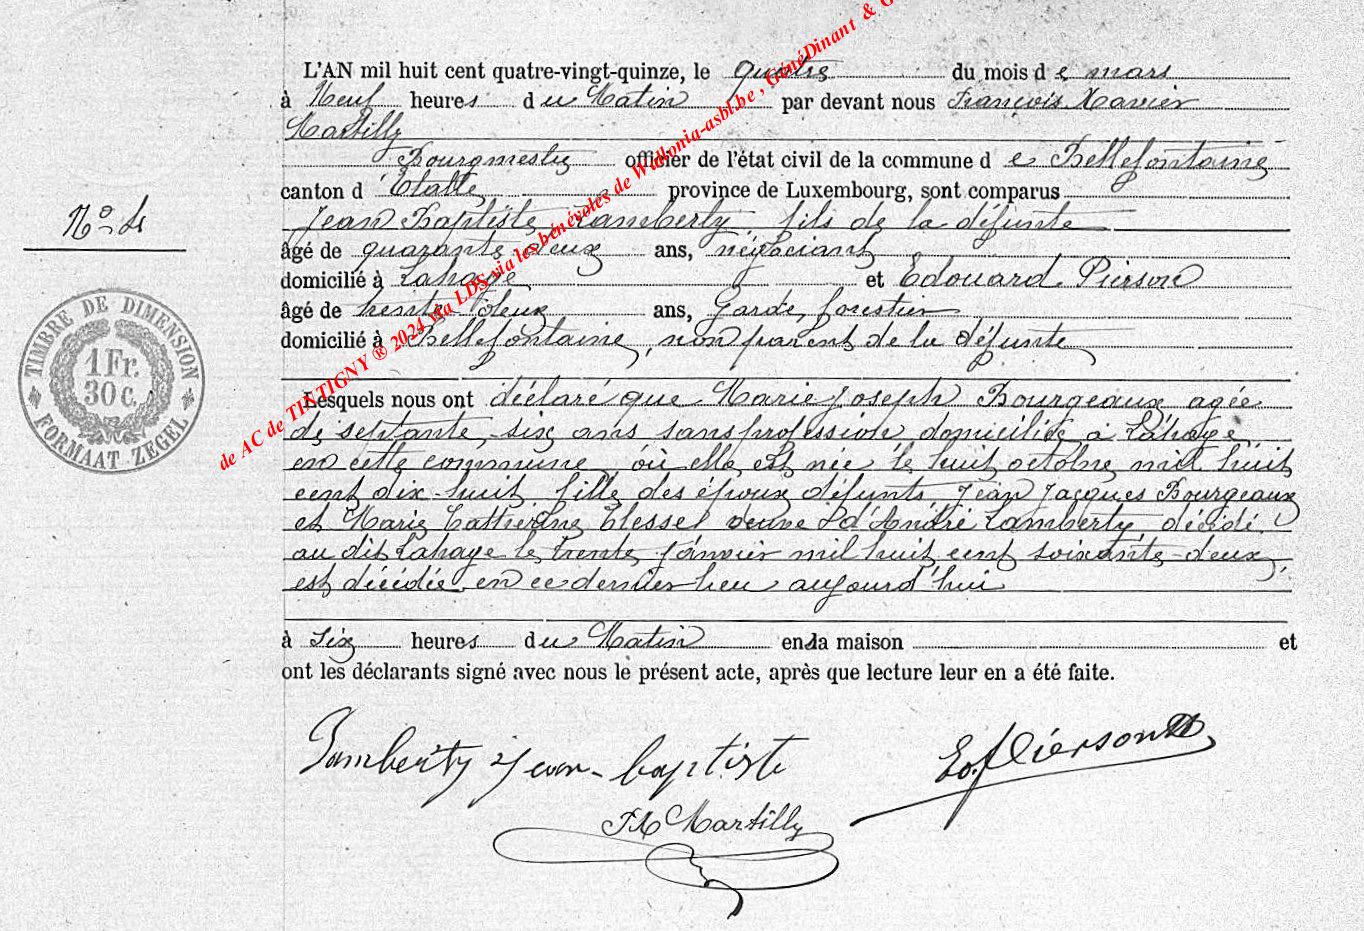 L'AN mil huit cent quatre-vingt-quinze, le quatre du mois de mars
à Neuf heures du Matin par devant nous François Xavier
Martilly
Bourgmestre officier de l'état civil de la commune de Bellefontaine
canton d'Etalle, province de Luxembourg, sont comparus
Jean Baptiste Lamberty fils de la défunte
âgé de quarante deux ans, négociant
domicilié à Lahage et Edouard Pierson
âgé de trente deux ans, Garde forestier
domicilié à Bellefontaine, non parent de la défunte
Lesquels nous ont déclaré que Marie Joseph Bourgeaux agée
de septante six ans sans profession domiciliée à Lahage
en cette commune, où elle est née le huit octobre mil huit
cent dix-huit, fille des époux défunts, Jean Jacques Bourgeaux
et Marie Catherine Clessel veuve d'André Lamberty décédé
au dit Lahage le trente janvier mil huit cent soixante-deux,
est décédée en ce dernier lieu aujourd'hui
à Six heures du Matin en la maison et
ont les déclarants signé avec nous le présent acte, après que lecture leur en a été faite.
Lamberty Jean-baptiste
Ed. Pierson
FX Martilly
No 4
TIMBRE DE DIMENSION
1 Fr.
30 c.
FORMAAT ZEGEL
de AC de TINTIGNY ® 2024 via LDS via les bénévoles de Wallonia-asbl.be, GénéDinant &